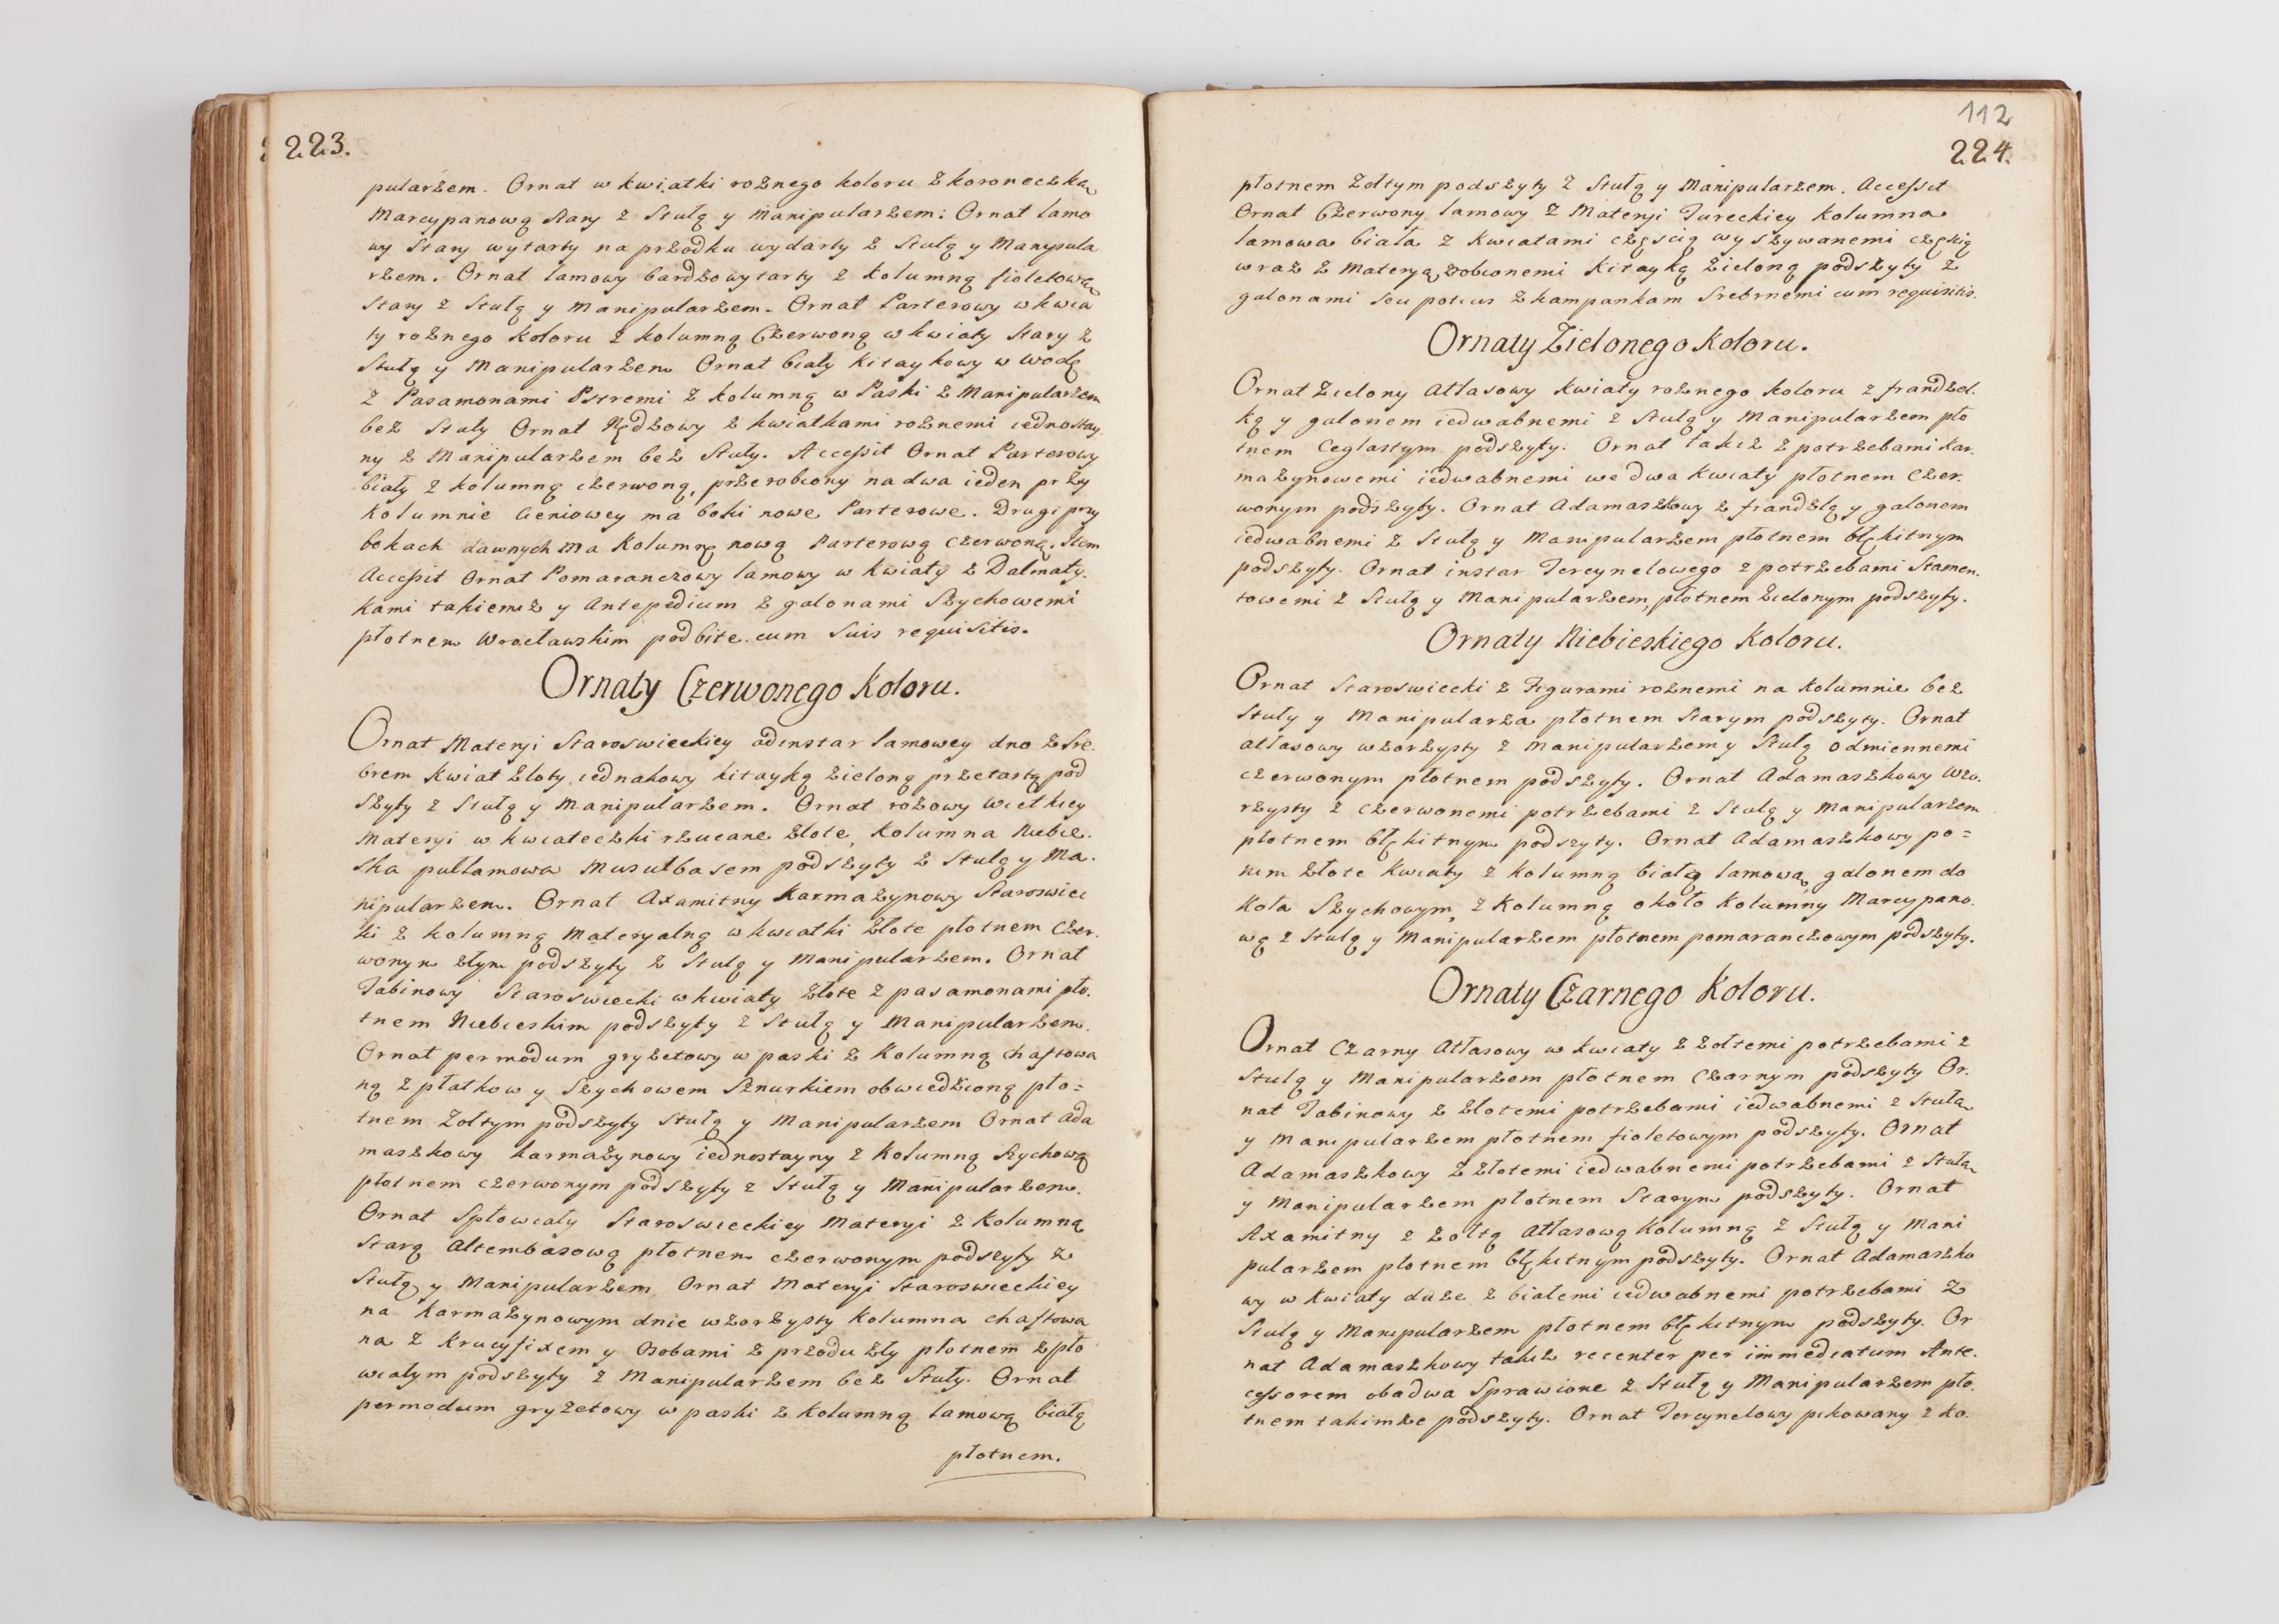 223.
pularzem. Ornat w kwiatki rożnego koloru z koroneczką
Marcypanową Stary z Stułą y Manipularzem: Ornat lamo
wy Stary wytarty na przodku wydarty z Stułą y Manypula
rzem. Ornat lamowy bardzo wytarty z kolumną fioletową
Stary z Stułą y Manipularzem. Ornat Parterowy w kwia
ty rożnego koloru z kolumną Czerwoną w kwiaty Stary z
Stułą y Manipularzem Ornat biały kitaykowy w wodę
z Pasamonami Pstremi z kolumną w Paski z Manipularzem
bez Stuły Ornat Rędzowy z kwiatkami rożnemi iednostay
ny z Manipularzem bez Stuły. Accessit Ornat Parterowy
biały z kolumną czerwoną, przerobiony na dwa ieden przy
kolumnie Cieniowey ma boki nowe Parterowe. Drugi przy
bokach dawnych ma Kolumnę nową Parterową Czerwoną. Item
Accessit Ornat Pomaranczowy lamowy w kwiaty z Dalmaty.
kami takiemiż y Antepedium z galonami Szychowemi
płotnem Wrocławskim podbite cum Suis requisitis.
Ornaty Czerwonego Koloru.
Ornat Materyi Staroswieckiey adinstar lamowey dno z Sre.
brem kwiat złoty iednakowy kitayką zieloną przetartą pod
szyty z Stułą y Manipularzem. Ornat rożowy wietkiey
Materyi w kwiateczki rzucane złote, kolumna Niebie.
ska pułlamowa Musułbasem podszyty z Stułą y Ma.
nipularzem. Ornat Axamitny Karmazynowy Staroswiec
ki z kolumną Materyalną w kwiatki złote płotnem Czer.
wonym złym podszyty z Stułą y Manipularzem. Ornat
Tabinowy Staroswiecki w kwiaty złote z pasamonami pło.
tnem Niebieskim podszyty z Stułą y Manipularzem.
Ornat per modum gryzetowy w paski z Kolumną chaftowa
ną z płatkow y Szychowem Sznurkiem obwiedzioną pło=
tnem Zołtym podszyty Stułą y Manipularzem Ornat Ada
maszkowy karmazynowy iednostayny z Kolumną Szychową
płotnem czerwonym podszyty z Stułą y Manipularzem.
Ornat Spłowiały Staroswieckiey Materyi z Kolumną
Starą Altembasową płotnem czerwonym podszyty z
Stułą y Manipularzem Ornat Materyi Staroswieckiey
na karmazynowym dnie wzorzysty Kolumna chaftowa
na z Krucyfixem y Osobami z przodu zły płotnem zpło
wiałym podszyty z Manipularzem bez Stuły. Ornat
permodum gryzetowy w paski z kolumną lamową białą
płotnem.
112
224.
płotnem Zołtym podszyty z Stułą y Manipularzem. Accessit
Ornat Czerwony lamowy z Materyi Tureckiey kolumna
lamowa biała z kwiatami częscią wyszywanemi częscią
wraz z Materyą robionemi kitayką zieloną podszyty z
galonami seu potius z kampankam Srebrnemi cum requisitis.
Ornaty Zielonego Koloru.
Ornat Zielony Atłasowy kwiaty rożnego koloru z frandzel.
ką y galonem iedwabnemi z Stułą y Manipularzem pło
tnem Ceglastym podszyty. Ornat takiż z potrzebami kar.
mazynowemi iedwabnemi we dwa kwiaty płotnem Czer.
wonym podszyty. Ornat Adamaszkowy z frandzlą y galonem
iedwabnemi z Stułą y Manipularzem płotnem błękitnym
podszyty. Ornat instar Tercynelowego z potrzebami Stamen.
towemi z Stułą y Manipularzem, płotnem Zielonym podszyty.
Ornaty Niebieskiego Koloru.
Ornat Staroswiecki z Figurami rożnemi na kolumnie bez
Stuły y Manipularza płotnem Starym podszyty. Ornat
atłasowy wzorzysty z Manipularzem y Stułą odmiennemi
czerwonym płotnem podszyty. Ornat Adamaszkowy Wzo.
rzysty z czerwonemi potrzebami z Stułą y Manipularzem
płotnem błękitnym podszyty. Ornat Adamaszkowy po=
nim złote kwiaty z kolumną białą lamową galonem do
koła Szychowym, z Kolumną około kolumny Marcypano.
wą z Stułą y Manipularzem płotnem pomaranczowym podszyty.
Ornaty Czarnego Koloru.
Ornat Czarny Atłasowy w kwiaty z zołtemi potrzebami z
Stułą y Manipularzem płotnem Czarnym podszyty Or.
nat Tabinowy z złotemi potrzebami iedwabnemi z Stułą
y Manipularzem płotnem fioletowym podszyty. Ornat
Adamaszkowy z złotemi iedwabnemi potrzebami z Stułą
y Manipularzem płotnem Starym podszyty. Ornat
Axamitny z zołtą Atłasową kolumną z Stułą y Mani
pularzem płotnem błękitnym podszyty. Ornat Adamaszko
wy w kwiaty duże z białemi iedwabnemi potrzebami z
Stułą y Manipularzem płotnem błękitnym podszyty. Or
nat Adamaszkowy takiż recenter per immediatum Ante.
cessorem obadwa Sprawione z Stułą y Manipularzem pło.
tnem takimże podszyty. Ornat Tercynelowy pikowany z ko.